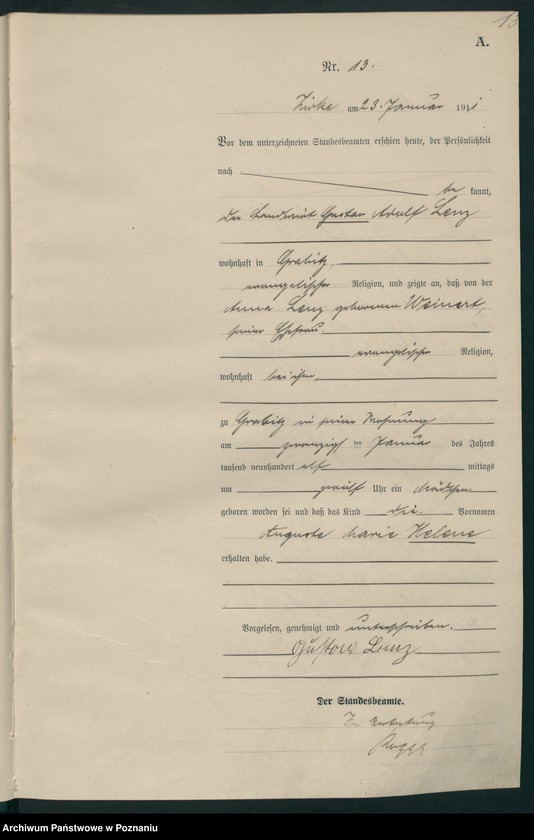 13
A.
Nr. 13.
Zirke am 23. Januar 1911
Vor dem unterzeichneten Standesbeamten erschien heute, der Persönlichkeit
nach
be kannt,
der Landwirt Gustav Adolf Lenz
wohnhaft in Grabitz,
evangelischer Religion, und zeigte an, daß von der
Anna Lenz geborenen Weinert,
seiner Ehefrau,
evangelischer Religion,
wohnhaft bei ihm,
zu Grabitz in seiner Wohnung
am zwanzigsten Januar des Jahres
tausend neunhundert elf mittags
um zwölf Uhr ein Mädchen
geboren worden sei und daß das Kind die Vornamen
Auguste Marie Helene
erhalten habe.
Vorgelesen, genehmigt und unterschrieben.
Gustav Lenz
Der Standesbeamte.
In Vertretung
Archiwum Państwowe w Poznaniu